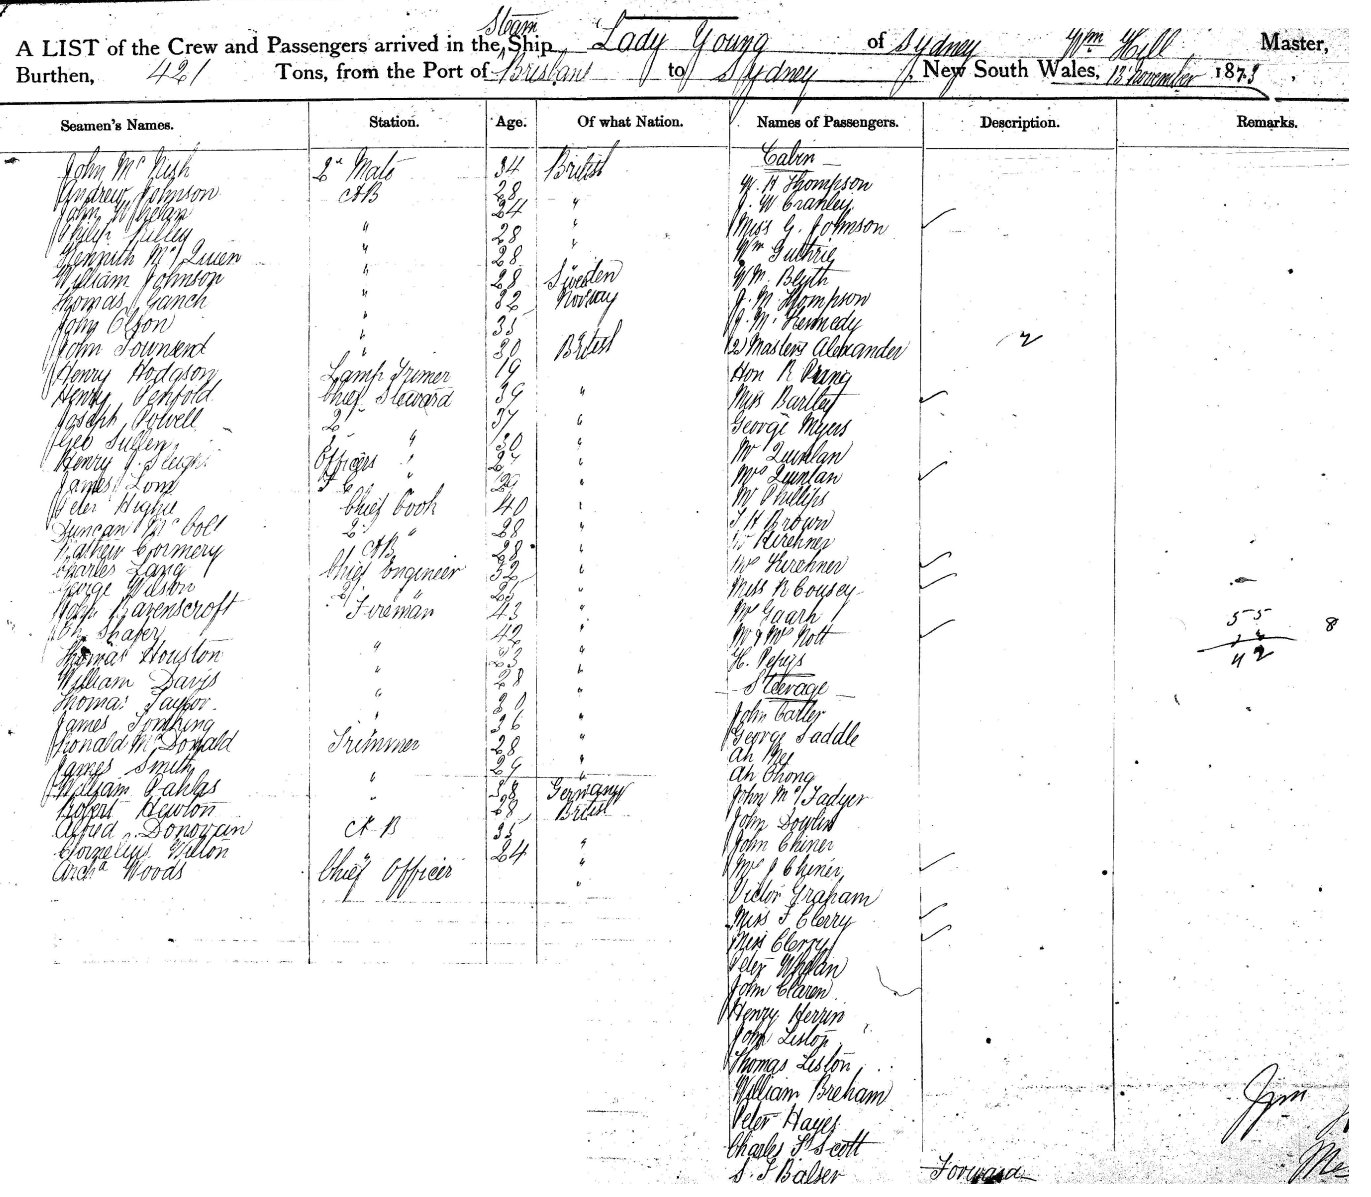 A LIST of the Crew and Passengers arrived in the Steam Ship Lady Young of Sydney Wm Hill Master,
Burthen, 421 Tons, from the Port of Brisbane to Sydney, New South Wales, 13 November 1873
Seamen's Names. Station. Age. Of what Nation. Names of Passengers. Description. Remarks.
John Mc Nish 2d Mate 34 British
Andrew Johnson AB 28 "
John Whelan 24 "
Philip " 28
Kennith Mc Quien " 28
William Johnson " 28 Sweden
Thomas " 32 Norway
John Olson " 35
John Townsend " 30 British
Henry Hodgson Lamp Trimer 19
Henry Penfold Chief Steward 39 "
Joseph Powell 2 " 37 "
Geo Sullen 3 " 30 "
Henry J. Sleigh Officers "
James
Peter Chief Cook 40
Duncan Mc 2 " 28
Cormery AB 28 "
Charles Lang Chief Engineer 32 "
George Wilson 2
John Ravenscroft Fireman 43 "
Shafer 42 "
Thomas Houston " 23 "
William Davis " 28 "
Thomas Taylor "
James " 36 "
Ronald Mc Donald Trimmer 28 "
James Smith 29 "
William Pahlas " 38 Germany
Robert Newton " 28 British
Alfred Donovan AB 35
Cornelius Wilton " 24 "
Archd Woods Chief Officer "
Cabin
W. H Thompson
J. W Crahley
Miss G. Johnson
Wm Guthrie
W M. Blyth
J. M Thompson
J. Mc Kennedy
(2) Masters Alexander 2
Hon R Pring
Miss Bartley
George Myers
Mr Quinlan
Mrs Quinlan
Mr Phillips
T H Brown
Kirchner
Mrs Kirchner
Miss R Cousey
Mr Gaarn
Mr & Mrs Nott
H. Pepys
55
42
8
Steerage
John Carter
George Saddle
Ah Mee
Ah Chong
John Mc Fadyer
John Dowlin
John Chiner
Mrs J Chiner
Victor Graham
Miss F Clerry
Miss Clerry
Peter Whelan
John Claren
Henry Herrin
John Liston
Thomas Liston
William Breham
Peter Hayes
Charles Fs Scott
S. F Balser Forward